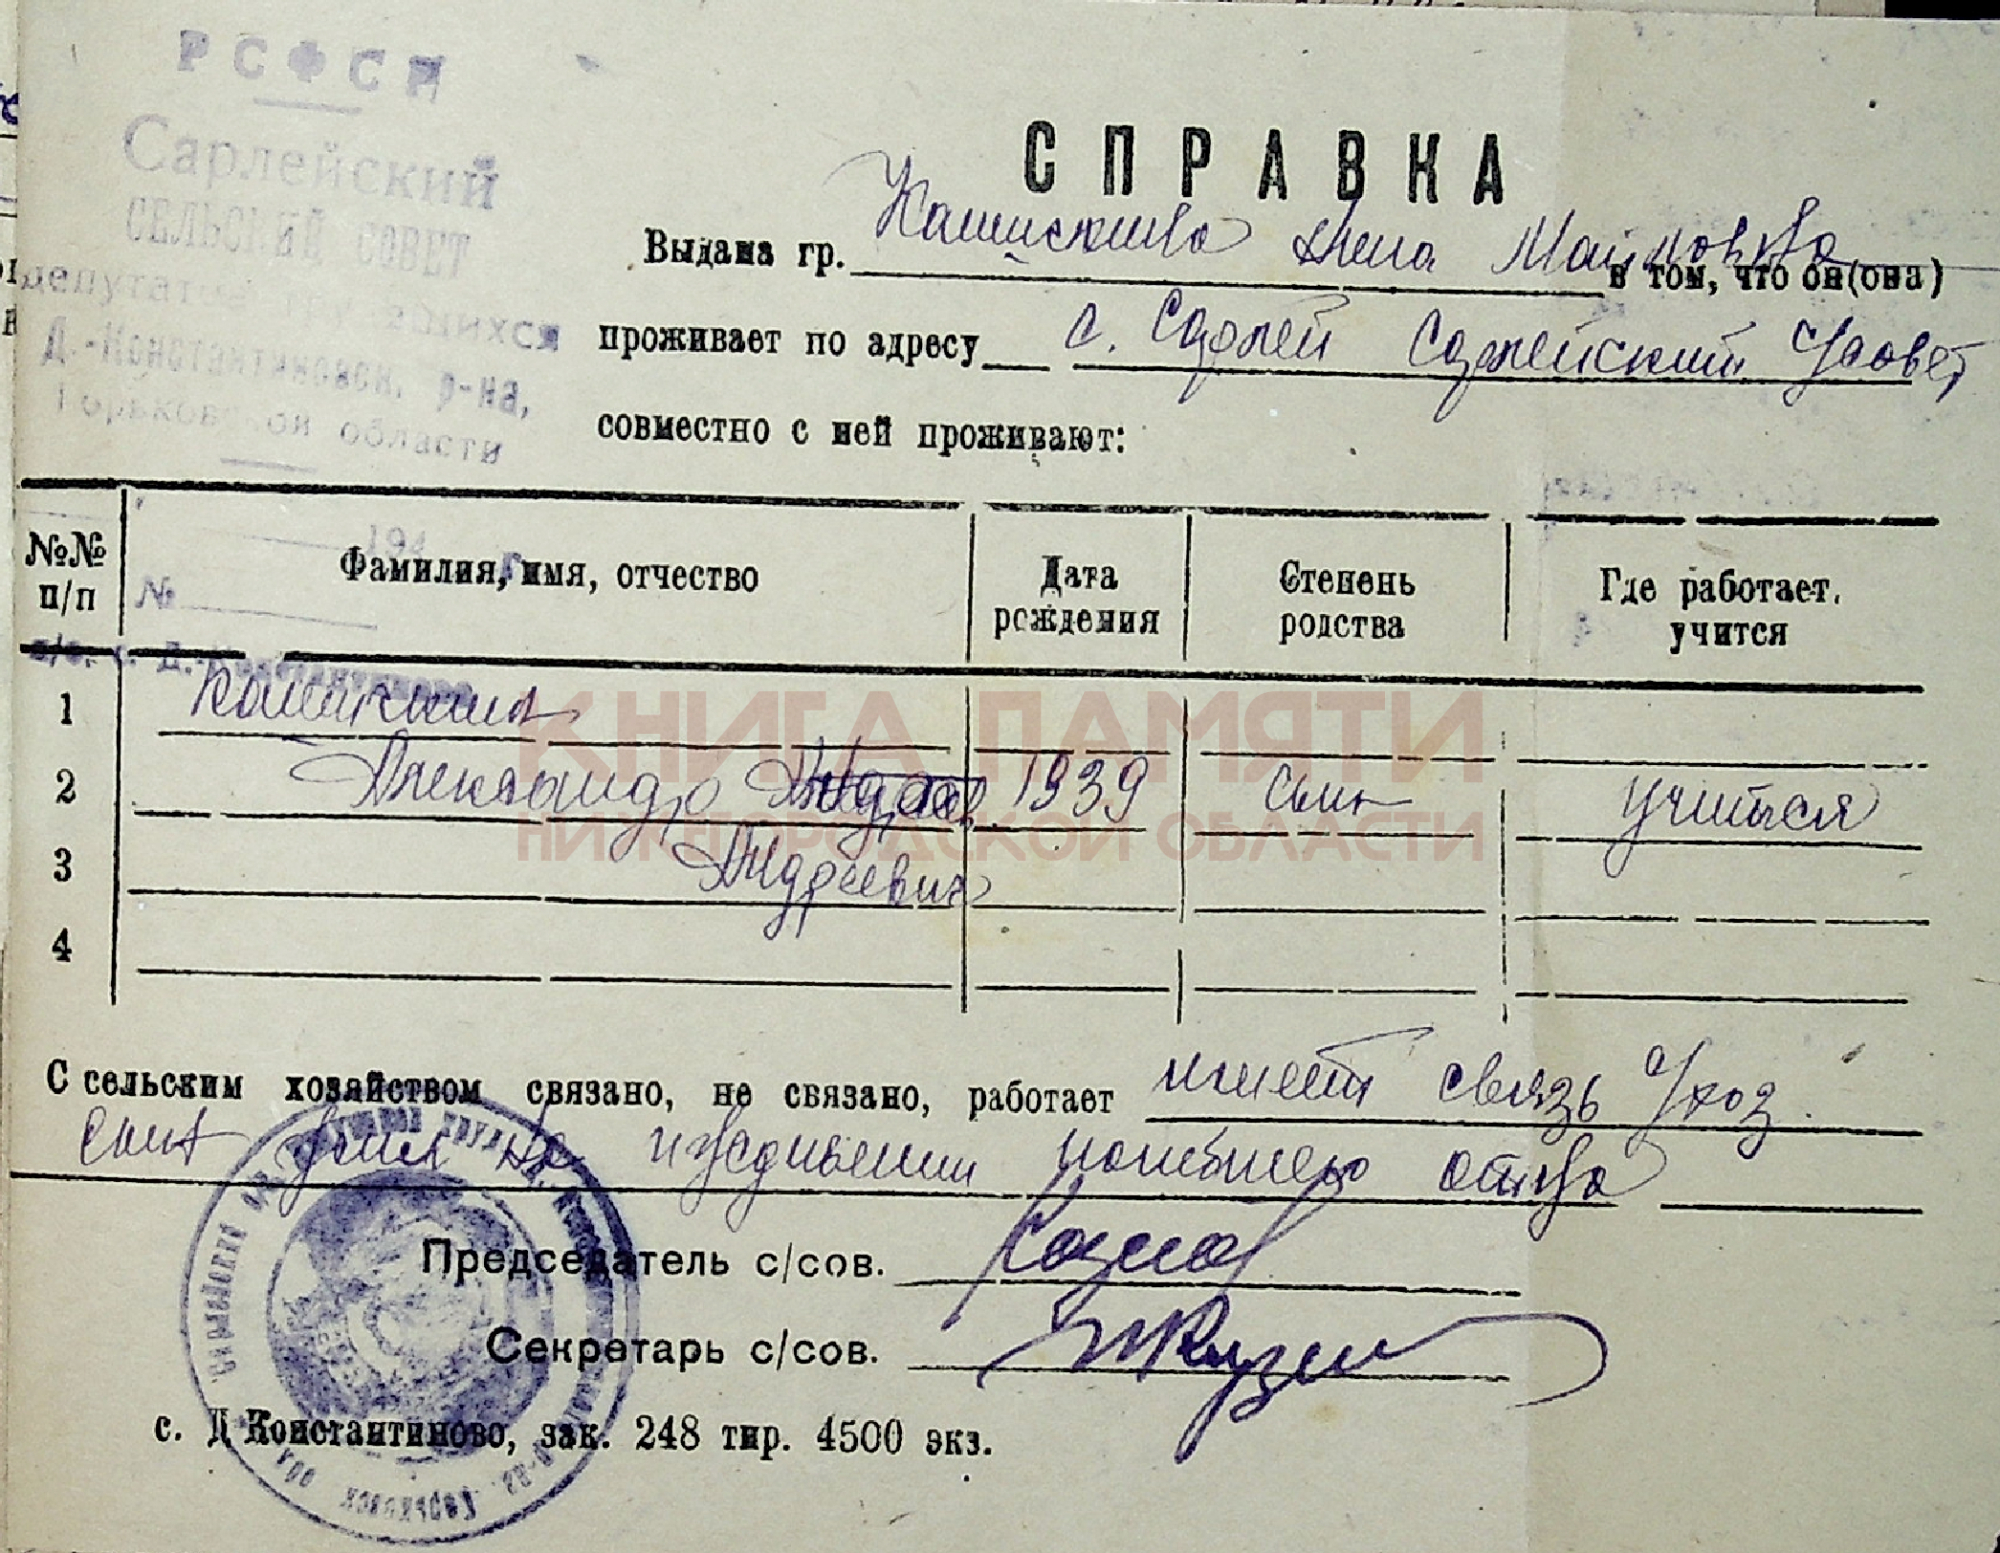 РСФСР
Сарлейский
СЕЛЬСКИЙ СОВЕТ
депутатов трудящихся
Д.-Константиновск. р-на,
Горьковской области
194 г.
№
п/о. с. Д.-Константиново
СПРАВКА
Выдана гр. Анна в том, что он(она)
проживает по адресу с. Сарлей Сарлейский с/совет
совместно с ней проживают:
№№ п/п Фамилия, имя, отчество Дата рождения Степень родства Где работает, учится
1
2 Александр 1939 сын учится
3 Андреевич
4
КНИГА ПАМЯТИ
НИЖЕГОРОДСКОЙ ОБЛАСТИ
С сельским хозяйством связано, не связано, работает имеет связь с/хоз.
сын был на иждивении погибшего отца
Председатель с/сов.
Секретарь с/сов.
с. Д Константиново, зак. 248 тир. 4500 экз.